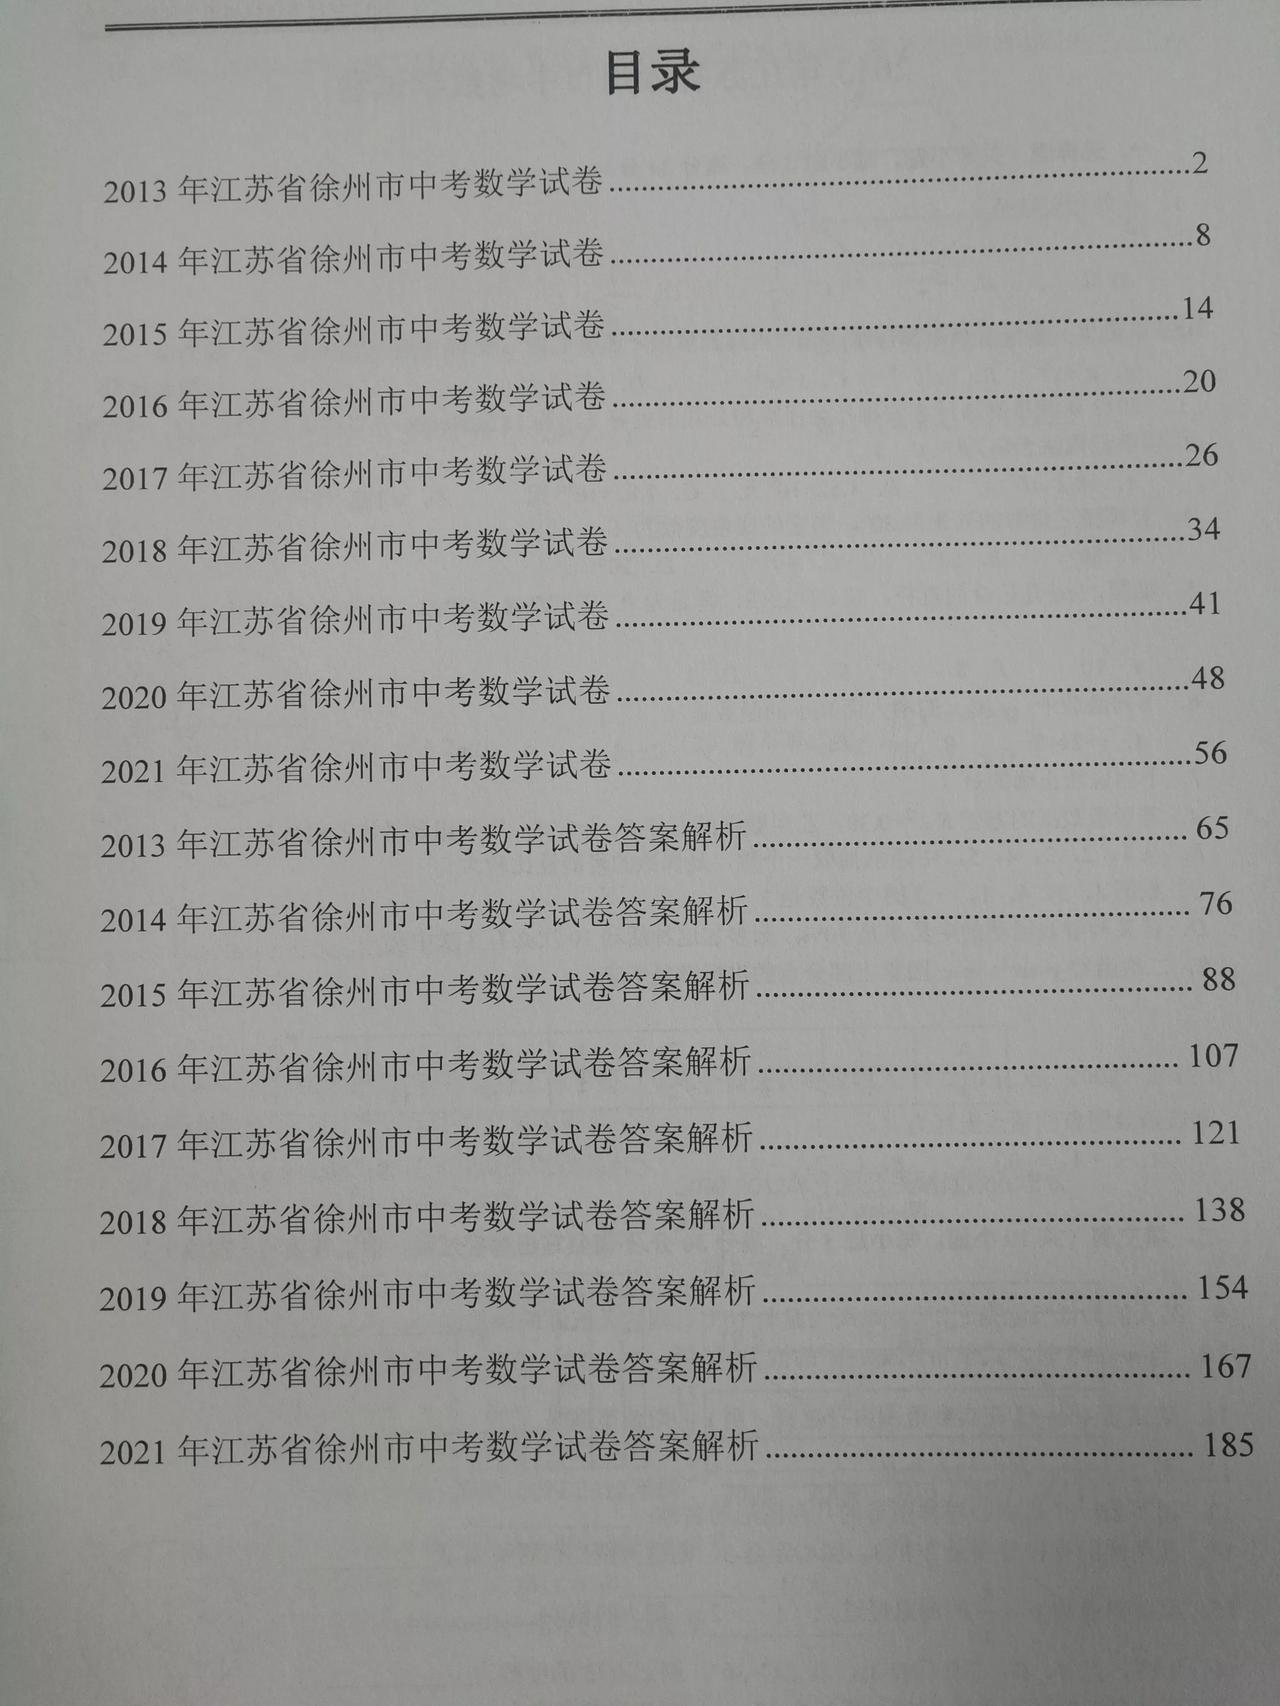 目录
2013 年江苏省徐州市中考数学试卷........................................................................2
2014 年江苏省徐州市中考数学试卷........................................................................8
2015 年江苏省徐州市中考数学试卷.......................................................................14
2016 年江苏省徐州市中考数学试卷.......................................................................20
2017 年江苏省徐州市中考数学试卷.......................................................................26
2018 年江苏省徐州市中考数学试卷.......................................................................34
2019 年江苏省徐州市中考数学试卷.......................................................................41
2020 年江苏省徐州市中考数学试卷.......................................................................48
2021 年江苏省徐州市中考数学试卷.......................................................................56
2013 年江苏省徐州市中考数学试卷答案解析...................................................... 65
2014 年江苏省徐州市中考数学试卷答案解析...................................................... 76
2015 年江苏省徐州市中考数学试卷答案解析...................................................... 88
2016 年江苏省徐州市中考数学试卷答案解析.................................................... 107
2017 年江苏省徐州市中考数学试卷答案解析.................................................... 121
2018 年江苏省徐州市中考数学试卷答案解析.................................................... 138
2019 年江苏省徐州市中考数学试卷答案解析.................................................... 154
2020 年江苏省徐州市中考数学试卷答案解析.................................................... 167
2021 年江苏省徐州市中考数学试卷答案解析.................................................... 185